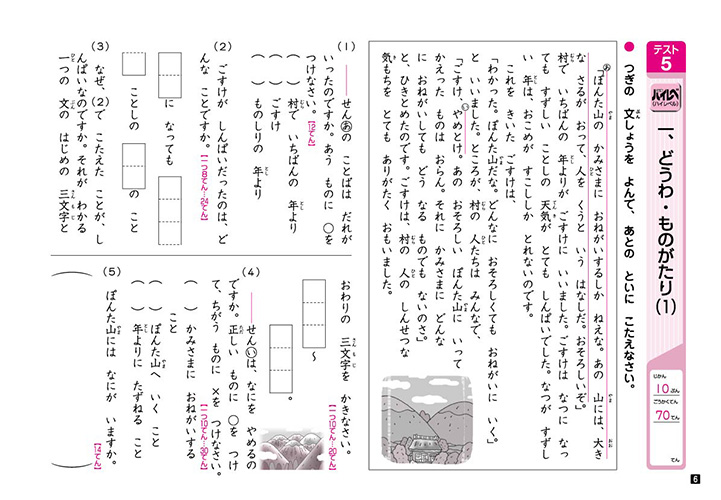 テスト
5
ハイレベ
(ハイレベル)
一、どうわ・ものがたり(1)
じかん
10ぷん
ごうかくてん
70てん
てん
● つぎの 文しょうを よんで、あとの といに こたえなさい。
あ「ぽんた山の かみさまに おねがいするしか ねえな。あの 山には、大き
な さるが おって、人を くうと いう はなしだ。おそろしいぞ」
村で いちばんの 年よりが ごすけに いいました。ごすけは なつに なっ
ても すずしい ことしの 天気が とても しんぱいでした。なつが すずし
い 年は、おこめが すこししか とれないのです。
これを きいた ごすけは、
「わかった。ぽんた山だな。どんなに おそろしくても おねがいに いく。」
と いいました。ところが、村の 人たちは みんなで、
「ごすけ、いやめとけ。あの おそろしい ぽんた山に いって
かえった ものは おらん。それに かみさまに どんな
に おねがいしても どう なる ものでも ないのさ。」
と、ひきとめたのです。ごすけは、村の 人の しんせつな
気もちを とても ありがたく おもいました。
(1) ――せんあの ことばは だれが
いったのですか。あう ものに ○を
つけなさい。【12てん】
( ) 村で いちばんの 年より
( ) ごすけ
( ) ものしりの 年より
(2) ごすけが しんぱいだったのは、ど
んな ことですか。【一つ8てん…24てん】
に なっても
ことしの
の こと
(3) なぜ、(2)で こたえた ことが、し
んぱいなのですか。それが わかる
一つの 文の はじめの 三文字と
おわりの 三文字を かきなさい。
【一つ10てん…20てん】
〜
。
(4) ――せんいは、なにを やめるの
ですか。正しい ものに ○を つけ
て、ちがう ものに ×を つけなさい。
【一つ10てん…30てん】
( ) かみさまに おねがいする
こと
( ) ぽんた山へ いく こと
( ) 年よりに たずねる こと
(5) ぽんた山には なにが いますか。
【14てん】
6